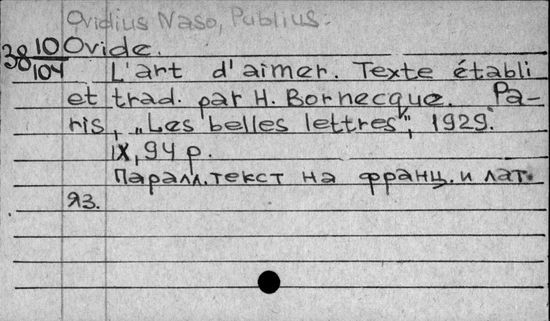 Ovidius Naso, Publius.
38 10/104 Ovide.
L'art d'aimer. Texte établi
et trad. par H. Bornecque. Pa-
ris, „Les belles lettres", 1929.
IX, 94 p.
Паралл. текст на франц. и лат.
яз.